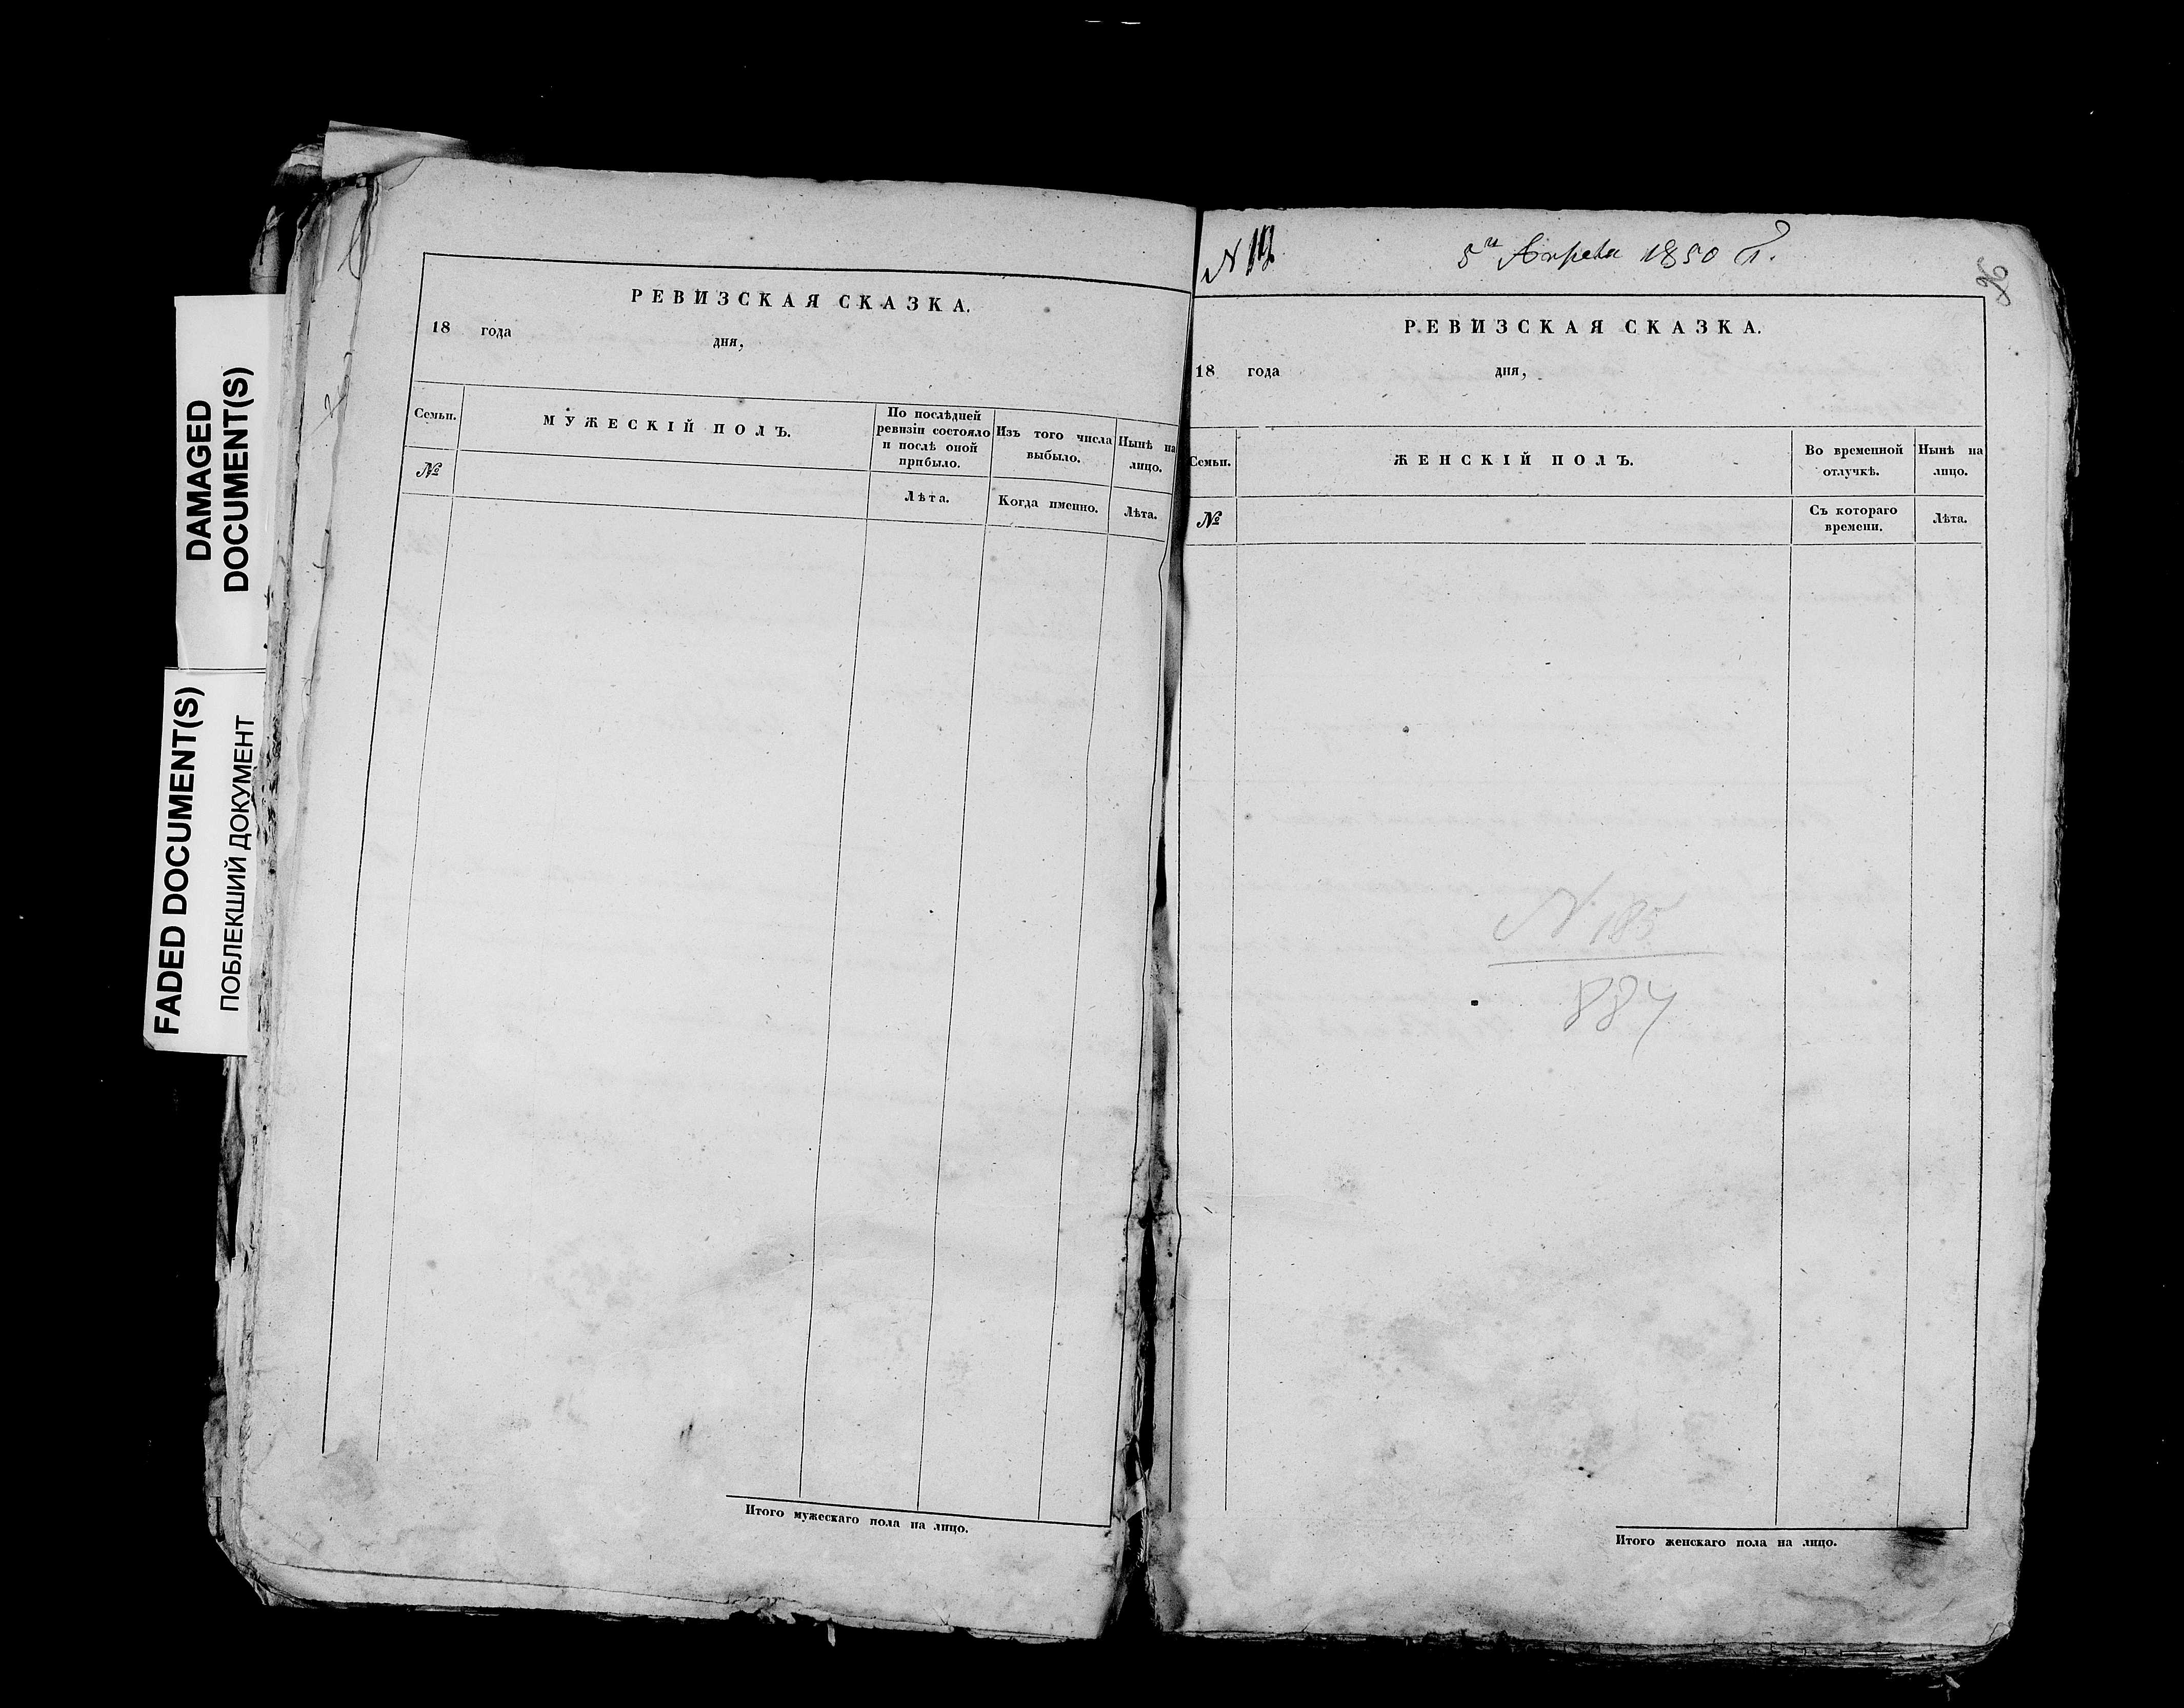 DAMAGED
DOCUMENT(S)
FADED DOCUMENT(S)
ПОБЛЕКШИЙ ДОКУМЕНТ
РЕВИЗСКАЯ СКАЗКА.
18 года дня,
Семьи. МУЖЕСКІЙ ПОЛЪ. По послѣдней ревизіи состояло и послѣ оной прибыло. Изъ того числа выбыло. Нынѣ на лицо.
№ Лѣта. Когда именно. Лѣта.
Итого мужескаго пола на лицо.
5 Апреля 1850 г.
РЕВИЗСКАЯ СКАЗКА.
18 года дня,
Семьи. ЖЕНСКІЙ ПОЛЪ. Во временной отлучкѣ. Нынѣ на лицо.
№ Съ котораго времени. Лѣта.
N 185
884
Итого женскаго пола на лицо.